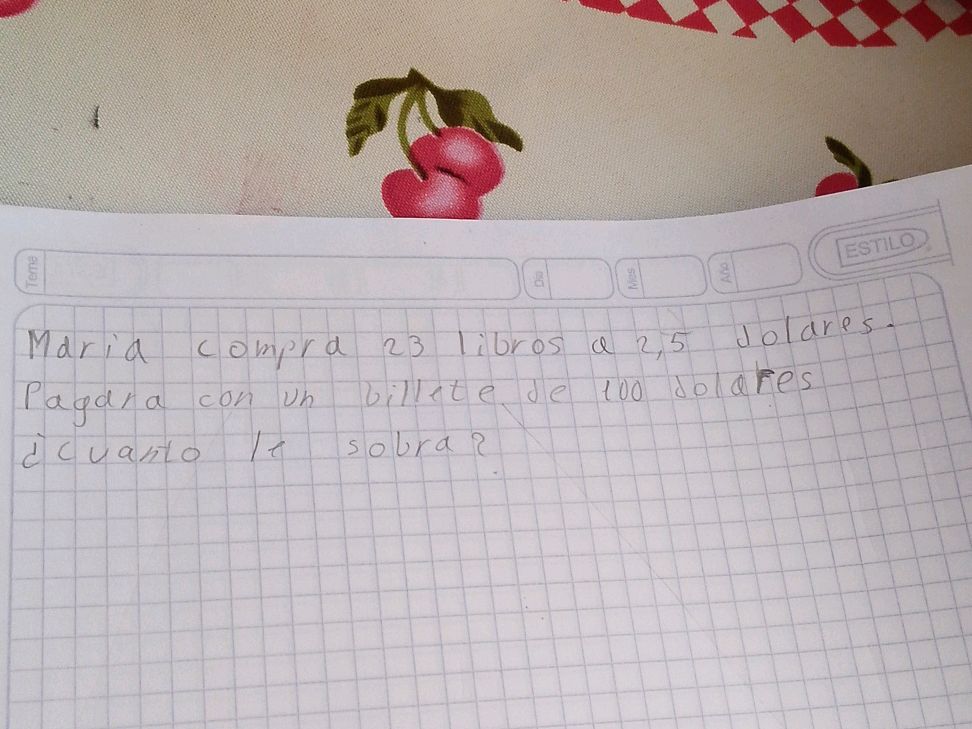 Tema
Dia
Mes
Año
ESTILO
Maria compra 23 libros a 2,5 dolares.
Pagara con un billete de 100 dolares
¿cuanto le sobra?